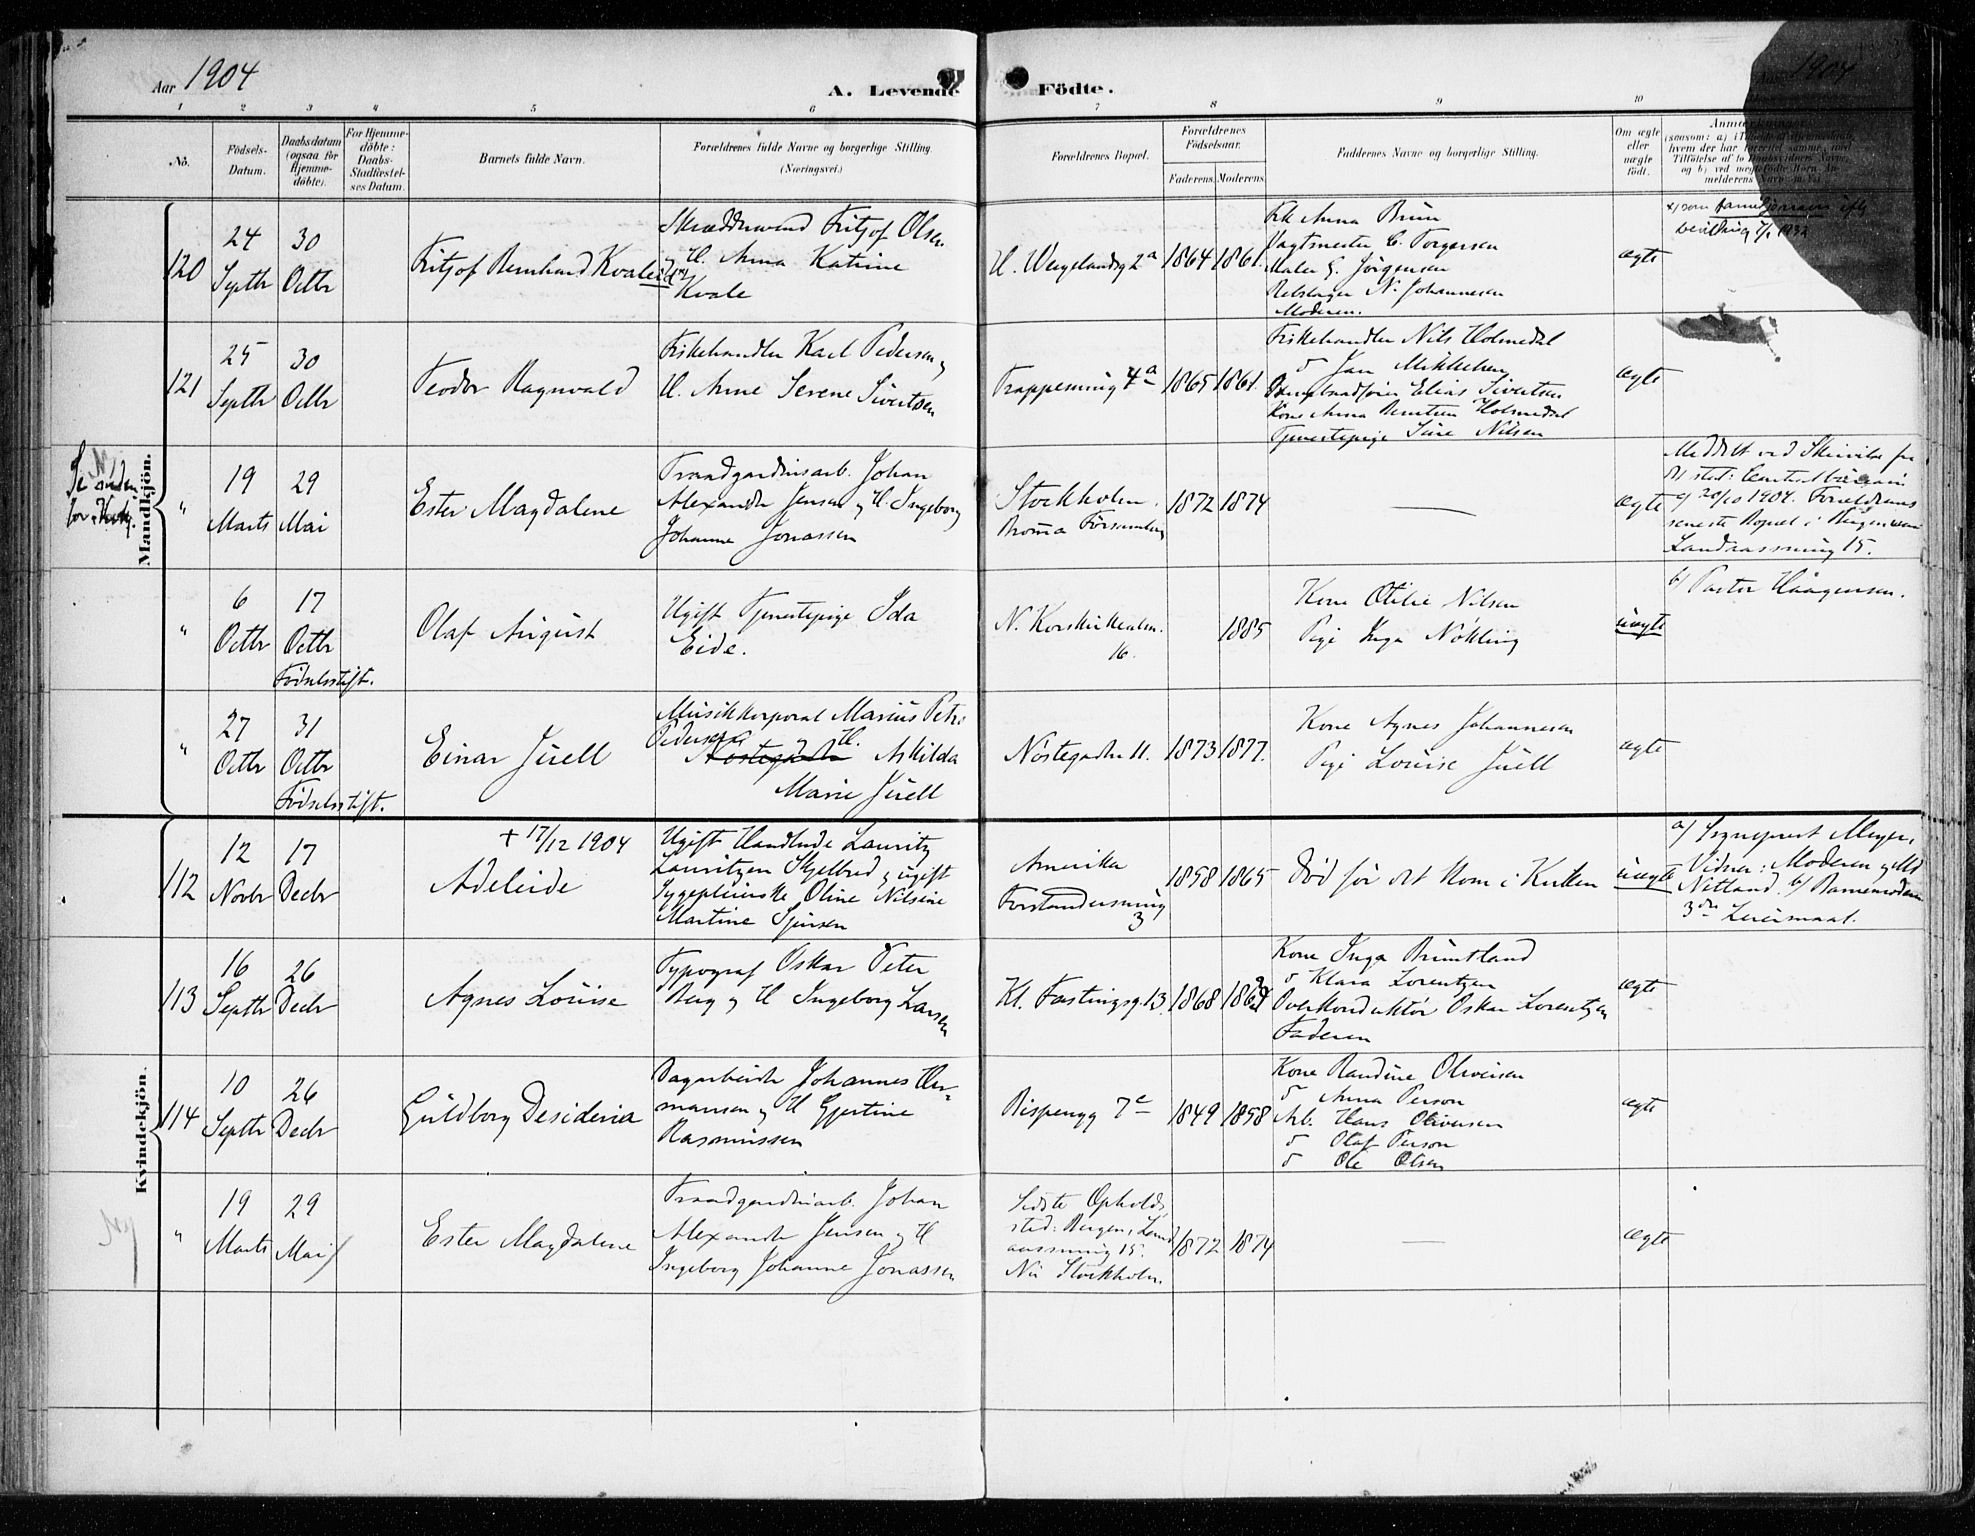 Aar 1904
A. Levende Födte.
1904
1 2 3 4 5 6 7 8 9 10
No.
Födsels-
Datum.
Daabsdatum
(ogsaa for
Hjemme-
döbte).
For Hjemme-
döbte:
Daabs-
Stadfæstel-
ses Datum.
Barnets fulde Navn.
Forældrenes fulde Navne og borgerlige Stilling.
(Næringsvei.)
Forældrenes Bopæl.
Forældrenes
Födselsaar.
Faderens. Moderens.
Faddernes Navne og borgerlige Stilling.
Om ægte
eller
uægte
født.
Mandkjön.
120
24
Septbr
30
Octbr
Fritjof Bernhard Kvale
Fritjof Olsen
H. Anna Katrine
Kvale
H. Wergelandsg 2a
1864 1861.
Frk Anna Brun
Vagtmester C. Torgersen
Maler G. Jörgensen
Rebslager N. Johannesen
Moderen.
ægte
121
25
Septbr
30
Octbr
Teodor Ragnvald
Fiskehandler Karl Pedersen og
H. Anne Serene Sivertsen
Trappesmug 4a
1865 1861.
Fiskehandler Nils Holmedal
Jan Mikkelsen
Elias Sivertsen
Kone Anna Holmedal
Tjenestepige Sine Nilsen
ægte
"
19
Marts
29
Mai
Ester Magdalene
Johan
Alexander Jensen og H. Ingeborg
Johanne Jonassen
Stockholm.
Broma Församling
1872 1874
ægte
20/10 1904. Forældrenes
seneste Bopæl i Bergen
Landaassmug 15.
"
6
Octbr
17
Octbr
Födselsstift.
Olaf August
Ugift Tjenestepige Ida
Eide.
N. Korskirkealm.
16.
1885
Kone Otilie Nilsen
Pige Inga Nökling
uægte
b/ Pastor Haagensen.
"
27
Octbr
31
Octbr
Födselsstift.
Einar Juell
Musikkorporal Marius Petr.
Pedersen og H.
Nöstegaden Askilda
Marie Juell
Nöstegaden 11.
1873 1877.
Kone Agnes Johannesen
Pige Louise Juell
ægte
Kvindekjön.
112
12
Novbr
17
Decbr
+ 17/12 1904
Adeleide
Ugift Handlende Lauritz
Lauritzen Skjelbred og ugift
Sygepleierske Oline Nilsine
Martine
Amerika
Forstandersmug
3
1858 1865
Död för det kom i Kirken
uægte
a/ Sogneprest Meyer,
Vidner: Moderen og
Nitland. b/ Barnemoderen
3die Leiermaal.
113
16
Septbr
26
Decbr
Agnes Louise
Typograf Oskar Peter
Berg og H Ingeborg Larsen
Kl. Fastingsg. 13
1868
Kone Inga Bruntland
Klara Lorentzen
Overkonduktör Oskar Lorentzen
Faderen
ægte
114
10
Septbr
26
Decbr
Guldborg Desideria
Dagarbeider Johannes Her-
mansen og H Gjertine
Rasmussen
Bispengg 7c
1849 1858
Kone Randine Oliversen
Anna Person
Arb. Hans Oliversen
Olaf Person
Ole Olsen
ægte
Ny
"
19
Marts
29
Mai
Ester Magdalene
Johan
Alexander Jensen og H
Ingeborg Johanne Jonassen
Sidste Opholds
sted: Bergen, Land
aassmug 15.
Nu Stockholm.
1872 1874
ægte